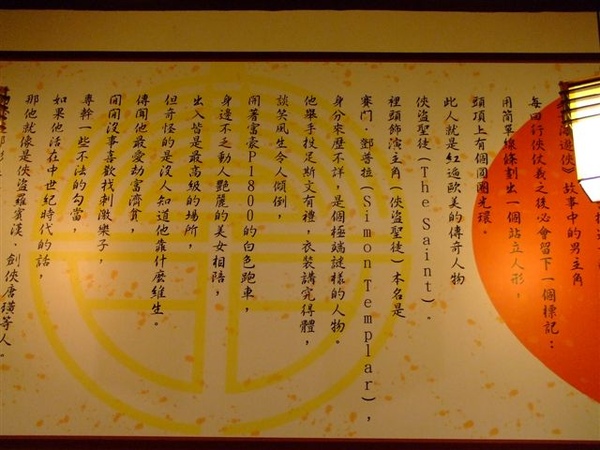 遊俠》故事中的男主角
每回行俠仗義之後必會留下一個標記：
用簡單線條割出一個站立人形，
頭頂上有個圓圈光環。
此人就是紅遍歐美的傳奇人物
俠盜聖徒(The Saint)。
裡頭飾演主角(俠盜聖徒)本名是
賽門．鄧普拉(Simon Templar)，
身分來歷不詳，是個極端謎樣的人物。
他舉手投足斯文有禮，衣裝講究得體，
談笑風生令人傾倒，
開著富豪P1800的白色跑車，
身邊不乏動人艷麗的美女相陪，
出入皆是最高級的場所，
但奇怪的是沒人知道他靠什麼維生。
傳聞他最愛劫富濟貧，
閒閒沒事喜歡找刺激樂子，
專幹一些不法的勾當，
如果他活在中世紀時代的話，
那他就像是俠盜羅賓漢．劍俠唐璜等人。